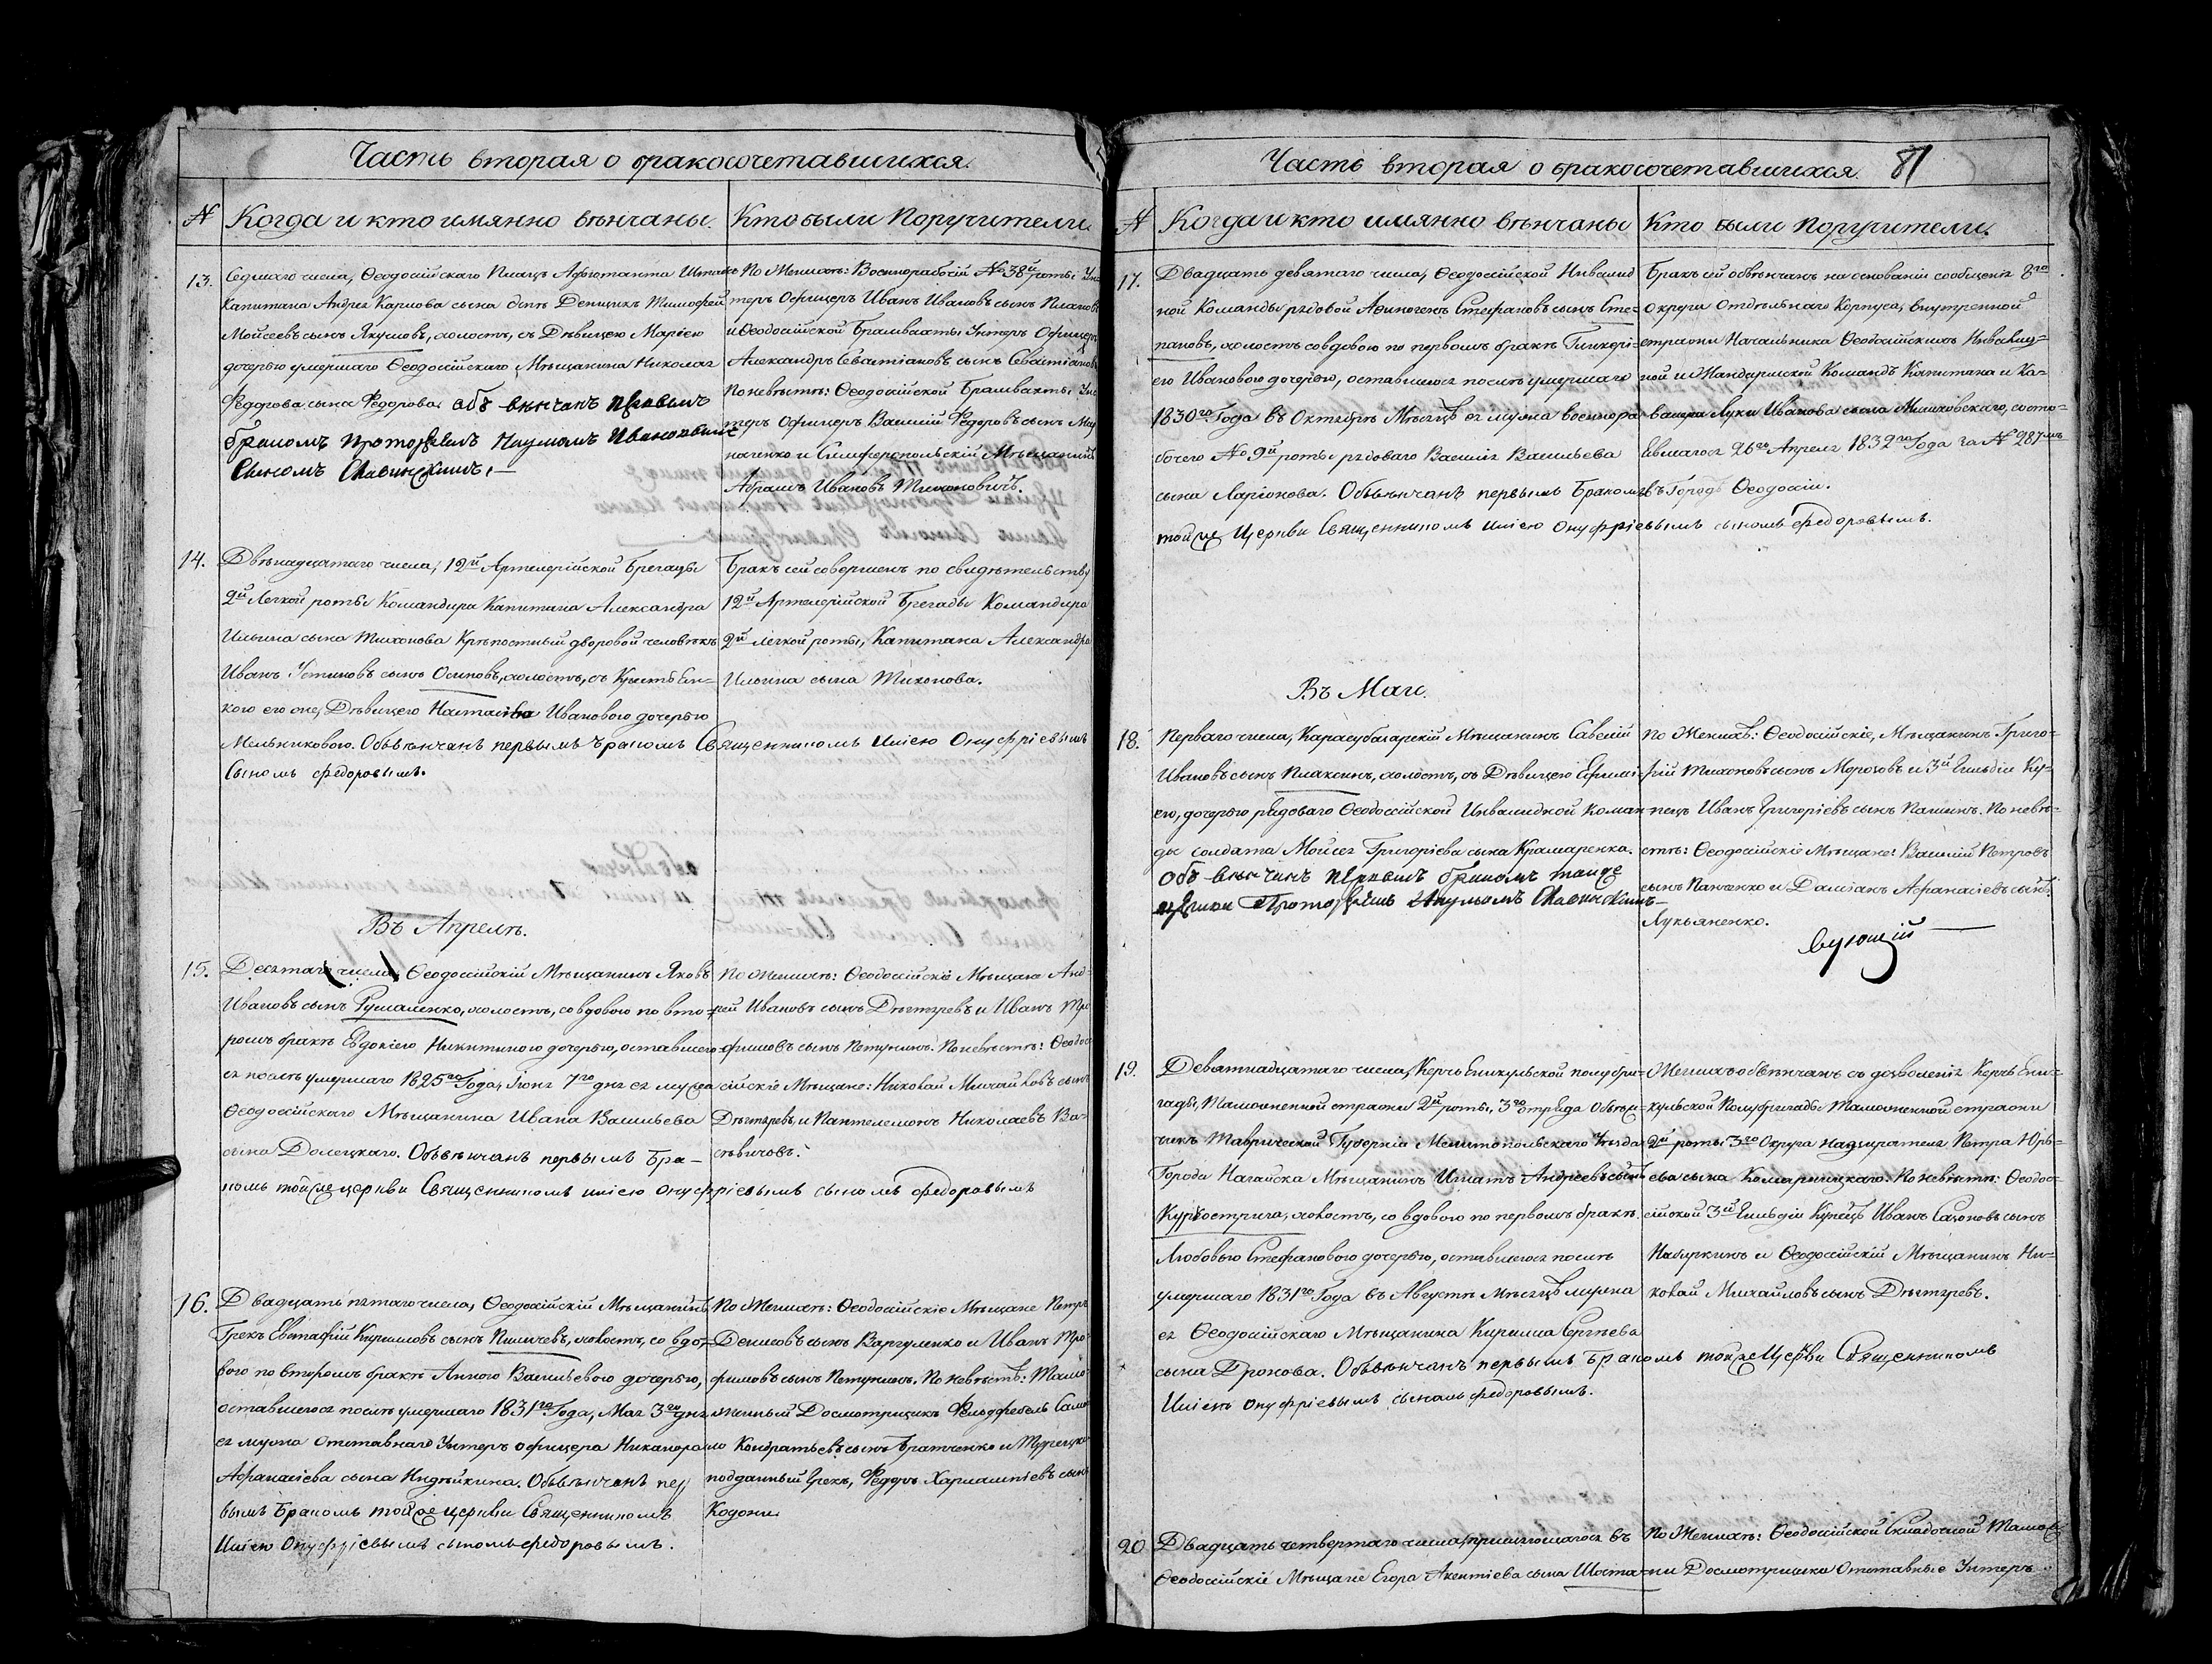 Часть вторая о бракосочетавшихся.
№ Когда и кто имянно вѣнчаны. Кто были Поручители.
13. Седмаго числа, Ѳеодосійскаго Плацъ Адъютанта Штабсъ
Капитана Андрея Карлова сына Денщикъ Тимофей
Мойсеевъ сынъ Якуловъ, холостъ, съ Дѣвицею Маріею
дочерью умершаго Ѳеодосійскаго Мѣщанина Николая
Федорова сына Федорова. обвѣнчанъ первымъ
бракомъ Протоіереемъ Наумомъ Ивановымъ
Сыномъ Славинскимъ.
По Женихѣ: Военнорабочій № 38й роты Ун
теръ Офицеръ Иванъ Ивановъ сынъ
и Ѳеодосійской Брамвахты Унтеръ Офицеръ
Александръ Севастіановъ сынъ Севастіановъ
По невѣстѣ: Ѳеодосійской Брамвахты Ун
теръ Офицеръ Василій Федоровъ сынъ
наченко и Симферопольскій Мѣщанинъ
Абрамъ Ивановъ Тихоновичъ.
14. Двѣнадцатаго числа, 12й Артелерійской Брегады
2й Легкой роты Командира Капитана Александра
Ильина сына Тихонова Крѣпостный дворовой человѣкъ
Иванъ Устиновъ сынъ Осиповъ, холостъ, съ Крѣпостн
кою его же, Дѣвицею Настасьею Ивановою дочерью
Мельниковою. Обвѣнчанъ первымъ бракомъ Священникомъ Иліею Онуфріевымъ
Сыномъ Федоровымъ.
Бракъ сей совершенъ по свидѣтельству
12й Артелерійской Брегады Командира
2й легкой роты, Капитана Александра
Ильина сына Тихонова.
Въ Апрелѣ.
15. Десятаго числа, Ѳеодосійскій Мѣщанинъ Яковъ
Ивановъ сынъ Румаленко, холостъ, со вдовою по вто-
ромъ бракѣ Евдокіею Никитиною дочерью, оставшею-
ся послѣ умершаго 1825го Года, Іюня 7го дня ея мужа
Ѳеодосійскаго Мѣщанина Ивана Васильева
сына Долецкаго. Обвѣнчанъ первымъ Бра-
комъ тойже церкви Священникомъ Иліею Онуфріевымъ сыномъ Федоровымъ
По Женихѣ: Ѳеодосійскіе Мѣщане Анд-
рей Ивановъ сынъ Дѣгтяревъ и Иванъ Тро
фимовъ сынъ Петунинъ. По невѣстѣ: Ѳеодос
сійскіе Мѣщане: Николай Михайловъ сынъ
Дѣгтяревъ, и Пантелемонъ Николаевъ Ва-
сѣвичовъ.
16. Двадцать пятаго числа, Ѳеодосійскій Мѣщанинъ
Грекъ Евстафій Кириловъ сынъ Пиличевъ, холостъ, со вдо-
вою по второмъ бракѣ Анною Васильевою дочерью,
оставшеюся послѣ умершаго 1831го Года, Мая 3го дня
ея мужа отставнаго Унтеръ офицера Никанора
Афанасіева сына Индѣйкина. Обвѣнчанъ пер
вымъ Бракомъ тойже церкви Священникомъ
Иліею Онуфріевымъ сыномъ Федоровымъ.
По Женихѣ: Ѳеодосійскіе Мѣщане Петръ
Денисовъ сынъ Варгуленко и Иванъ Тро
фимовъ сынъ Петунинъ. По невѣстѣ: Тамо
женный Досмотрщикъ Фельдфебель Само
ло Кондратьевъ сынъ Братченко и Турецкой
подданный Грекъ, Федоръ Харлампіевъ сынъ
Кодони.
Часть вторая о бракосочетавшихся. 81
№ Когда и кто имянно вѣнчаны Кто были Поручители.
17. Двадцать девятаго числа, Ѳеодосійской Инвалид
ной Команды рядовой Афиногенъ Стефановъ сынъ Сте-
пановъ, холостъ со вдовою по первомъ бракѣ Гликері-
ею Ивановою дочерью, оставшеюся послѣ умершаго
1830го Года въ Октябрѣ Мѣсяцѣ ея мужа военнора
бочего № 9й роты рядоваго Василія Васильева
сына Ларіонова. Обвѣнчанъ первымъ Бракомъ
тойже Церкви Священникомъ Иліею Онуфріевымъ сыномъ Федоровымъ.
Бракъ сей обвѣнчанъ на основаніи сообщенія 8го
округа Отдѣльнаго Корпуса, внутренной
стражи Начальника Ѳеодосійскихъ Инвалид-
ной и Жандармской Командъ Капитана и Ка-
валера Луки Иванова сына Милковскаго, состо-
явшагося 26го Апреля 1832го Года за № 287мъ
въ Городѣ Ѳеодосіи.
Въ Маи.
18. Перваго числа, Карасубазарскій Мѣщанинъ Савелій
Ивановъ сынъ Плаксинъ, холостъ, съ Дѣвицею Ефимі-
ею, дочерью рядоваго Ѳеодосійской Инвалидной Коман
ды солдата Мойсея Григорієва сына Крамаренка.
Обвѣнчанъ первымъ бракомъ тойже
церкви Протоіереемъ Наумомъ Славинскимъ
По Женихѣ: Ѳеодосійскіе, Мѣщанинъ Григо-
рій Тихоновъ сынъ Морозовъ и 3й Гильдіи Ку-
пецъ Иванъ Григоріевъ сынъ Пашинъ. По невѣ-
стѣ: Ѳеодосійскіе Мѣщане: Василій Петровъ
сынъ Панченко и Даміанъ Афанасіевъ сынъ
Лукьяненко.
вующій
19. Девятнадцатаго числа, Керчь Еникульской полубри-
гады, Таможенной стражи 2й роты, 3го отряда Объѣзд-
чикъ Таврической Губерніи Мелитопольскаго Уѣзда
Города Нагайска Мѣщанинъ Игнатъ Андреевъ сынъ
Курьострига, холостъ, со вдовою по первомъ бракѣ
Любовью Стефановою дочерью, оставшеюся послѣ
умершаго 1831го Года въ Августѣ Мѣсяцѣ мужа
ея Ѳеодосійскаго Мѣщанина Кирилла Сергѣева
сына Дронова. Обвѣнчанъ первымъ Бракомъ тойже Церкви Священникомъ
Иліею Онуфріевымъ сыномъ Федоровымъ.
Женихъ обвѣнчанъ съ дозволенія Керчь Ени-
кульской Полубригады Таможенной стражи
2й роты 3го Округа Надзирателя Петра Юрь-
ева сына Комарницкаго. По невѣстѣ: Ѳеодос-
сійской 3й Гильдіи Купецъ Иванъ Сазоновъ сынъ
Набуркинъ и Ѳеодосійскій Мѣщанинъ Ни-
колай Михайловъ сынъ Дѣгтяревъ.
20 Двадцать четвертаго числа, причисляющагося въ
Ѳеодосійскіе Мѣщане Егора Акентіева сына Шоста
По Женихѣ: Ѳеодосійской Складочной Тамож
ни Досмотрщики Отставные Унтеръ